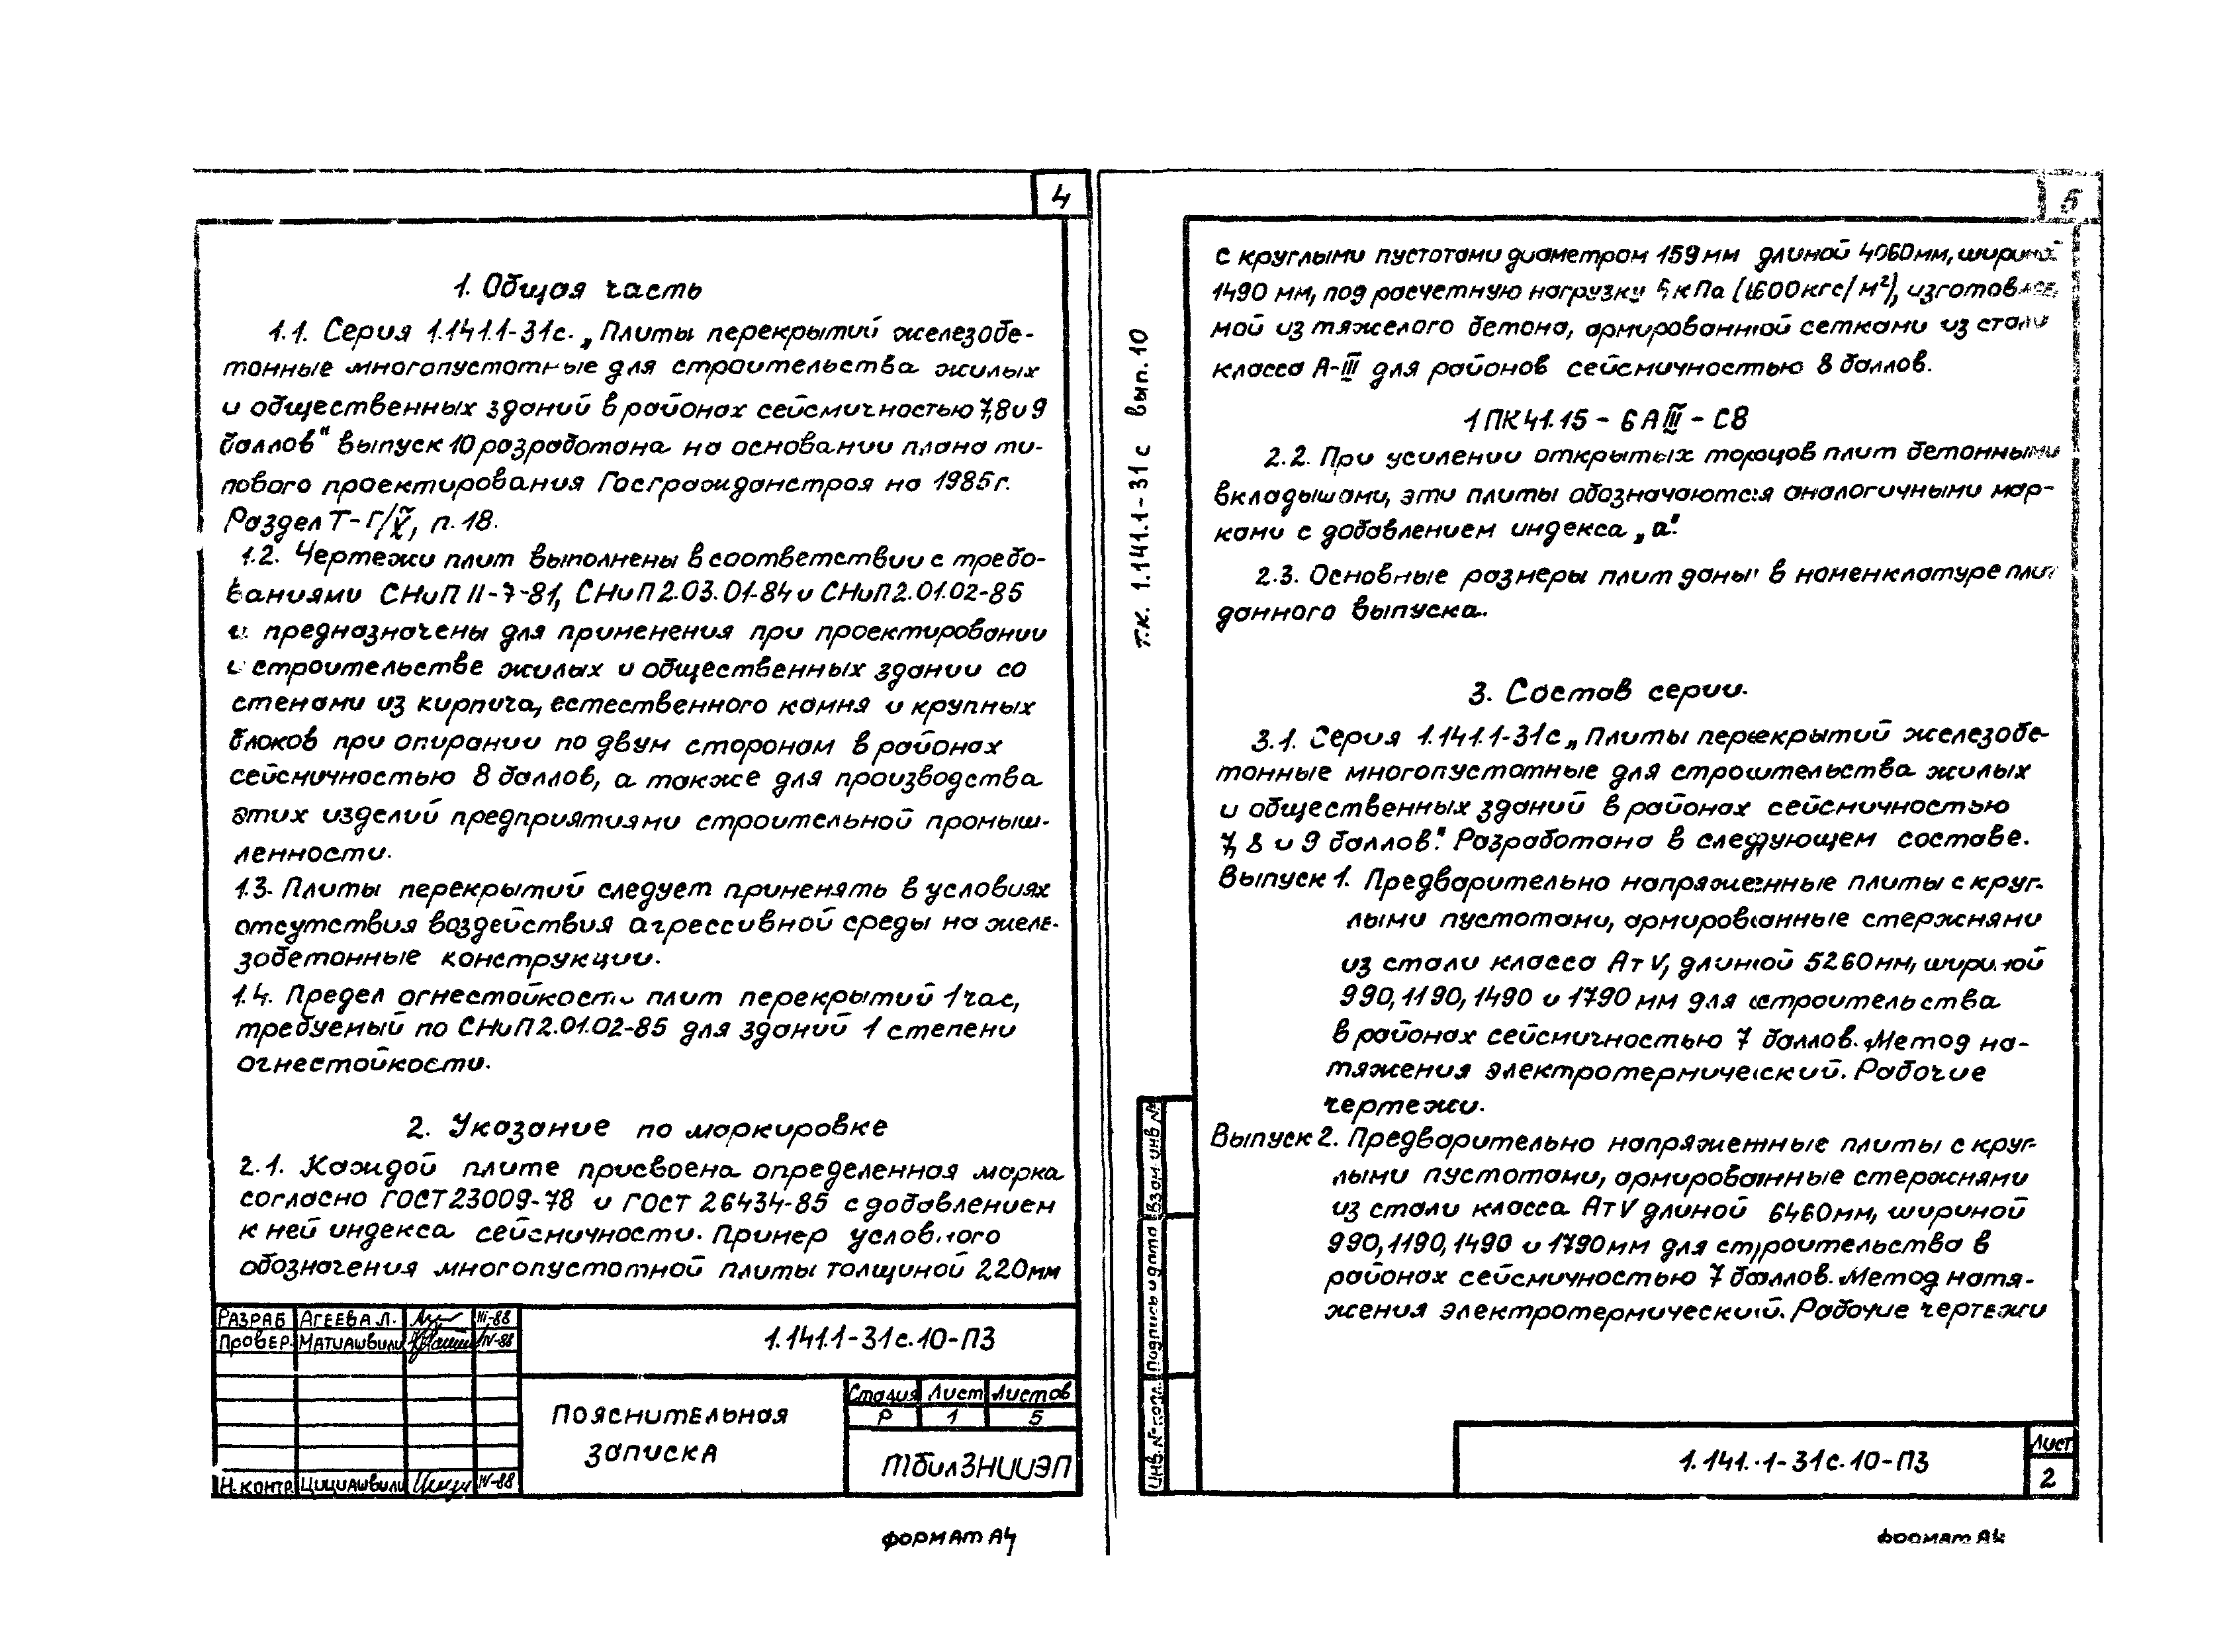 4
1. Общая часть
1.1. Серия 1.141.1-31с. „Плиты перекрытий железобе-
тонные многопустотные для строительства жилых
и общественных зданий в районах сейсмичностью 7,8 и 9
баллов" выпуск 10 разработана на основании плана ти-
пового проектирования Госгражданстроя на 1985г.
Раздел Т-Г/V, п.18.
1.2. Чертежи плит выполнены в соответствии с требо-
ваниями СНиП II-7-81, СНиП 2.03.01-84 и СНиП 2.01.02-85
и предназначены для применения при проектировании
и строительстве жилых и общественных зданий со
стенами из кирпича, естественного камня и крупных
блоков при опирании по двум сторонам в районах
сейсмичностью 8 баллов, а также для производства
этих изделий предприятиями строительной промыш-
ленности.
1.3. Плиты перекрытий следует применять в условиях
отсутствия воздействия агрессивной среды на желе-
зобетонные конструкции.
1.4. Предел огнестойкости плит перекрытий 1 час,
требуемый по СНиП 2.01.02-85 для зданий 1 степени
огнестойкости.
2. Указание по маркировке
2.1. Каждой плите присвоена определенная марка
согласно ГОСТ 23009-78 и ГОСТ 26434-85 с добавлением
к ней индекса сейсмичности. Пример условного
обозначения многопустотной плиты толщиной 220мм
Разраб Агеева Л. III-88
Провер. Матиашвили IV-88
Н. контр. Цициашвили IV-88
1.141.1-31с.10-ПЗ
Пояснительная
записка
Стадия Лист Листов
Р 1 5
ТбилЗНИИЭП
Формат А4
5
с круглыми пустотами диаметром 159мм длиной 4060мм, шириной
1490 мм, под расчетную нагрузку 6 кПа (600кгс/м²), изготовляе-
мой из тяжелого бетона, армированной сетками из стали
класса А-III для районов сейсмичностью 8 баллов.
1ПК41.15-6АIII-С8
2.2. При усилении открытых торцов плит бетонными
вкладышами, эти плиты обозначаются аналогичными мар-
ками с добавлением индекса „а".
2.3. Основные размеры плит даны в номенклатуре плит
данного выпуска.
3. Состав серии.
3.1. Серия 1.141.1-31с „Плиты перекрытий железобе-
тонные многопустотные для строительства жилых
и общественных зданий в районах сейсмичностью
7, 8 и 9 баллов". Разработана в следующем составе.
Выпуск 1. Предварительно напряженные плиты с круг-
лыми пустотами, армированные стержнями
из стали класса Ат V, длиной 5260мм, шириной
990, 1190, 1490 и 1790 мм для строительства
в районах сейсмичностью 7 баллов. Метод на-
тяжения электротермический. Рабочие
чертежи.
Выпуск 2. Предварительно напряженные плиты с круг-
лыми пустотами, армированные стержнями
из стали класса Ат V длиной 6460мм, шириной
990, 1190, 1490 и 1790мм для строительства в
районах сейсмичностью 7 баллов. Метод натя-
жения электротермический. Рабочие чертежи
Т.К. 1.141.1-31с вып.10
Взам. инв №
Подпись и дата
Инв. № подл.
1.141.1-31с.10-ПЗ
Лист
2
Формат А4